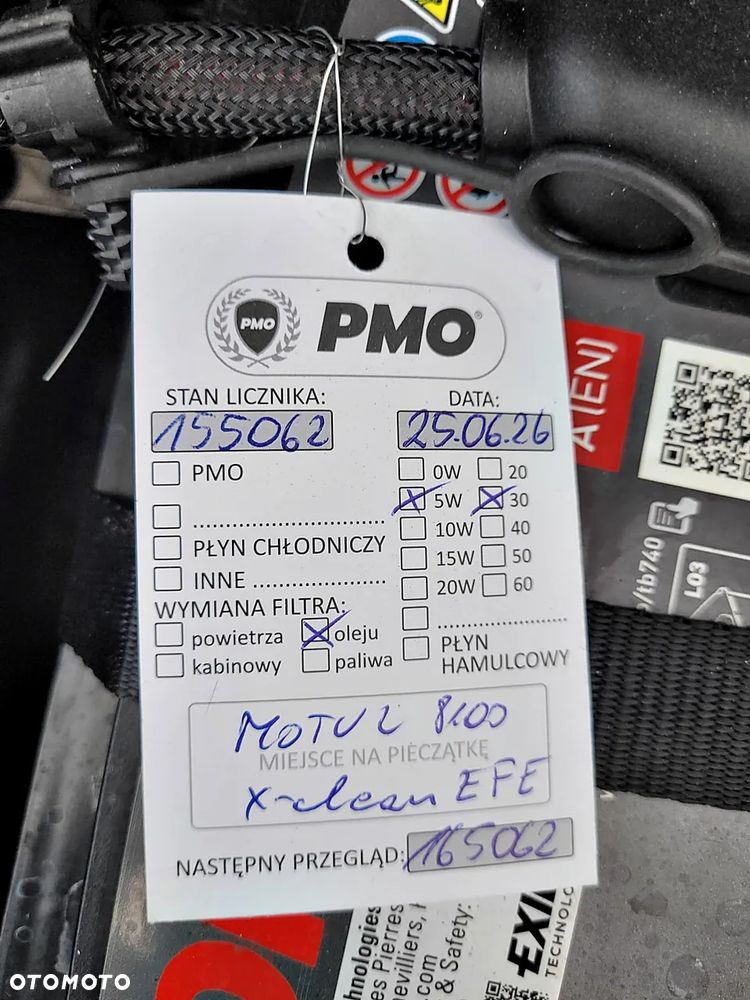 PMO
PMO®
STAN LICZNIKA: DATA:
155062 25.06.26
PMO 0W 20
5W 30
PŁYN CHŁODNICZY 10W 40
INNE 15W 50
20W 60
WYMIANA FILTRA:
powietrza oleju
kabinowy paliwa
PŁYN HAMULCOWY
MOTUL 8100
MIEJSCE NA PIECZĄTKĘ
X-clean EFE
NASTĘPNY PRZEGLĄD: 165062
A(EN)
/tb740
L03
hnologies
es Pierres
evilliers,
com
& Safety:
EXI
TECHNOLO
OTOMOTO